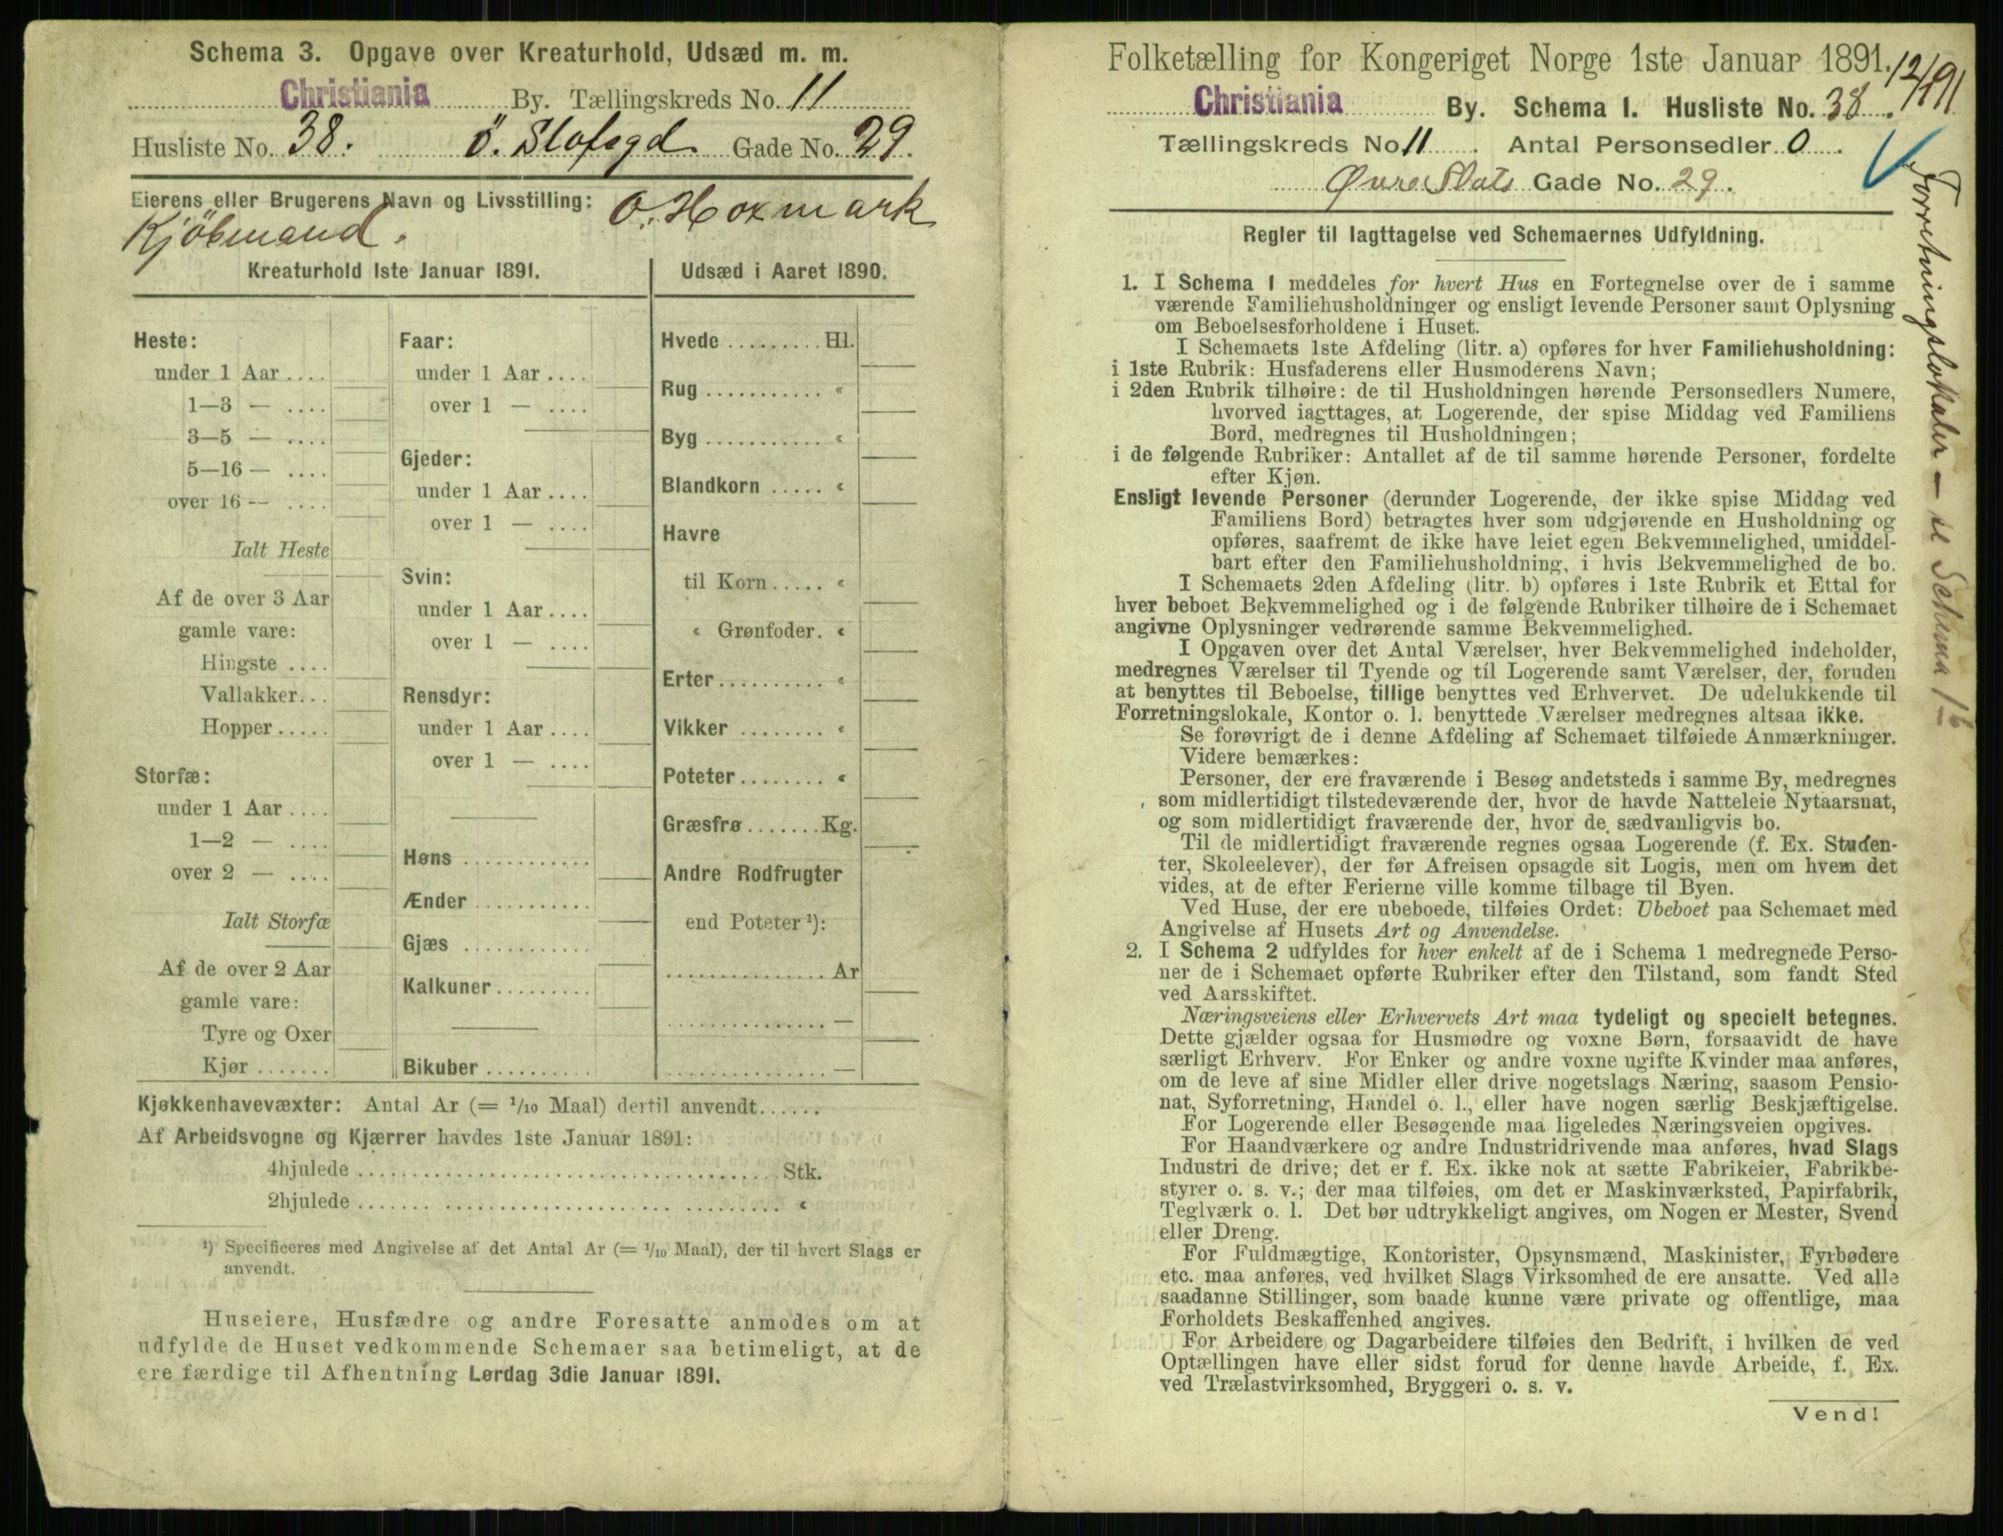 Schema 3. Opgave over Kreaturhold, Udsæd m. m.
Christiania By. Tællingskreds No. 11
Husliste No. 38. Ö. Slotsgd Gade No. 29.
Eierens eller Brugerens Navn og Livsstilling: O. Hoxmark
Kjöbmand.
Kreaturhold 1ste Januar 1891.
Heste:
under 1 Aar ....
1—3 — ....
3—5 — ....
5—16 — ....
over 16 — ....
Ialt Heste
Af de over 3 Aar
gamle vare:
Hingste ....
Vallakker...
Hopper.....
Storfæ:
under 1 Aar ....
1—2 — ....
over 2 — ....
Ialt Storfæ
Af de over 2 Aar
gamle vare:
Tyre og Oxer
Kjør .......
Faar:
under 1 Aar ....
over 1 — ....
Gjeder:
under 1 Aar ....
over 1 — ....
Svin:
under 1 Aar ....
over 1 — ....
Rensdyr:
under 1 Aar ....
over 1 — ....
Høns ............
Ænder ...........
Gjæs ............
Kalkuner.........
Bikuber ..........
Udsæd i Aaret 1890.
Hvede ......... Hl.
Rug ........... «
Byg ........... «
Blandkorn ..... «
Havre
til Korn ..... «
« Grønfoder. «
Erter.......... «
Vikker ........ «
Poteter........ «
Græsfrø....... Kg.
Andre Rodfrugter
end Poteter ¹):
............... Ar
............... —
............... —
Kjøkkenhavevæxter: Antal Ar (= 1/10 Maal) dertil anvendt......
Af Arbeidsvogne og Kjærrer havdes 1ste Januar 1891:
4hjulede .................................... Stk.
2hjulede .................................... «
¹) Specificeres med Angivelse af det Antal Ar (= 1/10 Maal), der til hvert Slags er
anvendt.
Huseiere, Husfædre og andre Foresatte anmodes om at
udfylde de Huset vedkommende Schemaer saa betimeligt, at de
ere færdige til Afhentning Lørdag 3die Januar 1891.
Folketælling for Kongeriget Norge 1ste Januar 1891.
12/1 91
Christiania By. Schema 1. Husliste No. 38.
Tællingskreds No. 11. Antal Personsedler 0.
Øvre Slots Gade No. 29.
Regler til Iagttagelse ved Schemaernes Udfyldning.
1. I Schema 1 meddeles for hvert Hus en Fortegnelse over de i samme
værende Familiehusholdninger og ensligt levende Personer samt Oplysning
om Beboelsesforholdene i Huset.
I Schemaets 1ste Afdeling (litr. a) opføres for hver Familiehusholdning:
i 1ste Rubrik: Husfaderens eller Husmoderens Navn;
i 2den Rubrik tilhøire: de til Husholdningen hørende Personsedlers Numere,
hvorved iagttages, at Logerende, der spise Middag ved Familiens
Bord, medregnes til Husholdningen;
i de følgende Rubriker: Antallet af de til samme hørende Personer, fordelte
efter Kjøn.
Ensligt levende Personer (derunder Logerende, der ikke spise Middag ved
Familiens Bord) betragtes hver som udgjørende en Husholdning og
opføres, saafremt de ikke have leiet egen Bekvemmelighed, umiddel-
bart efter den Familiehusholdning, i hvis Bekvemmelighed de bo.
I Schemaets 2den Afdeling (litr. b) opføres i 1ste Rubrik et Ettal for
hver beboet Bekvemmelighed og i de følgende Rubriker tilhøire de i Schemaet
angivne Oplysninger vedrørende samme Bekvemmelighed.
I Opgaven over det Antal Værelser, hver Bekvemmelighed indeholder,
medregnes Værelser til Tyende og til Logerende samt Værelser, der, foruden
at benyttes til Beboelse, tillige benyttes ved Erhvervet. De udelukkende til
Forretningslokale, Kontor o. l. benyttede Værelser medregnes altsaa ikke.
Se forøvrigt de i denne Afdeling af Schemaet tilføiede Anmærkninger.
Videre bemærkes:
Personer, der ere fraværende i Besøg andetsteds i samme By, medregnes
som midlertidigt tilstedeværende der, hvor de havde Natteleie Nytaarsnat,
og som midlertidigt fraværende der, hvor de sædvanligvis bo.
Til de midlertidigt fraværende regnes ogsaa Logerende (f. Ex. Studen-
ter, Skoleelever), der før Afreisen opsagde sit Logis, men om hvem det
vides, at de efter Ferierne ville komme tilbage til Byen.
Ved Huse, der ere ubeboede, tilføies Ordet: Ubeboet paa Schemaet med
Angivelse af Husets Art og Anvendelse.
2. I Schema 2 udfyldes for hver enkelt af de i Schema 1 medregnede Perso-
ner de i Schemaet opførte Rubriker efter den Tilstand, som fandt Sted
ved Aarsskiftet.
Næringsveiens eller Erhvervets Art maa tydeligt og specielt betegnes.
Dette gjælder ogsaa for Husmødre og voxne Børn, forsaavidt de have
særligt Erhverv. For Enker og andre voxne ugifte Kvinder maa anføres,
om de leve af sine Midler eller drive nogetslags Næring, saasom Pensio-
nat, Syforretning, Handel o. l., eller have nogen særlig Beskjæftigelse.
For Logerende eller Besøgende maa ligeledes Næringsveien opgives.
For Haandværkere og andre Industridrivende maa anføres, hvad Slags
Industri de drive; det er f. Ex. ikke nok at sætte Fabrikeier, Fabrikbe-
styrer o. s. v.; der maa tilføies, om det er Maskinværksted, Papirfabrik,
Teglværk o. l. Det bør udtrykkeligt angives, om Nogen er Mester, Svend
eller Dreng.
For Fuldmægtige, Kontorister, Opsynsmænd, Maskinister, Fyrbødere
etc. maa anføres, ved hvilket Slags Virksomhed de ere ansatte. Ved alle
saadanne Stillinger, som baade kunne være private og offentlige, maa
Forholdets Beskaffenhed angives.
For Arbeidere og Dagarbeidere tilføies den Bedrift, i hvilken de ved
Optællingen have eller sidst forud for denne havde Arbeide, f. Ex.
ved Trælastvirksomhed, Bryggeri o. s. v.
Vend!
Forretningslokaler — se Schema 1 b